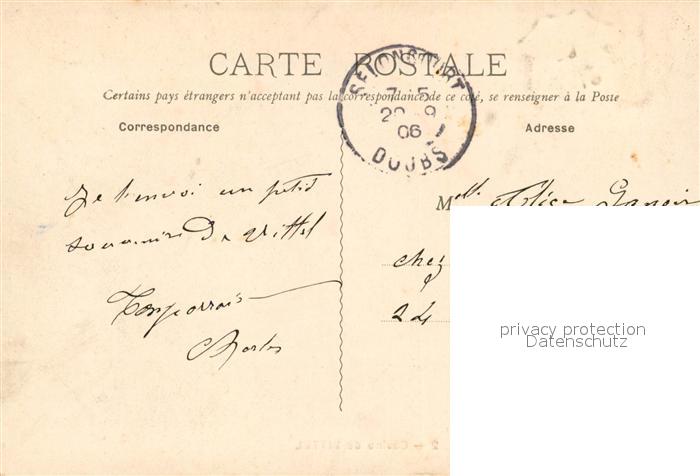 CARTE POSTALE
Certains pays étrangers n'acceptant pas la correspondance de ce coté, se renseigner à la Poste
Correspondance
Adresse
SELONCOURT
7 - 5
20 9
06
DOUBS
Je t'envoi un petit
souvenire De Vittel
Ton parrain
Charles
Melle
chez
24
privacy protection
Datenschutz